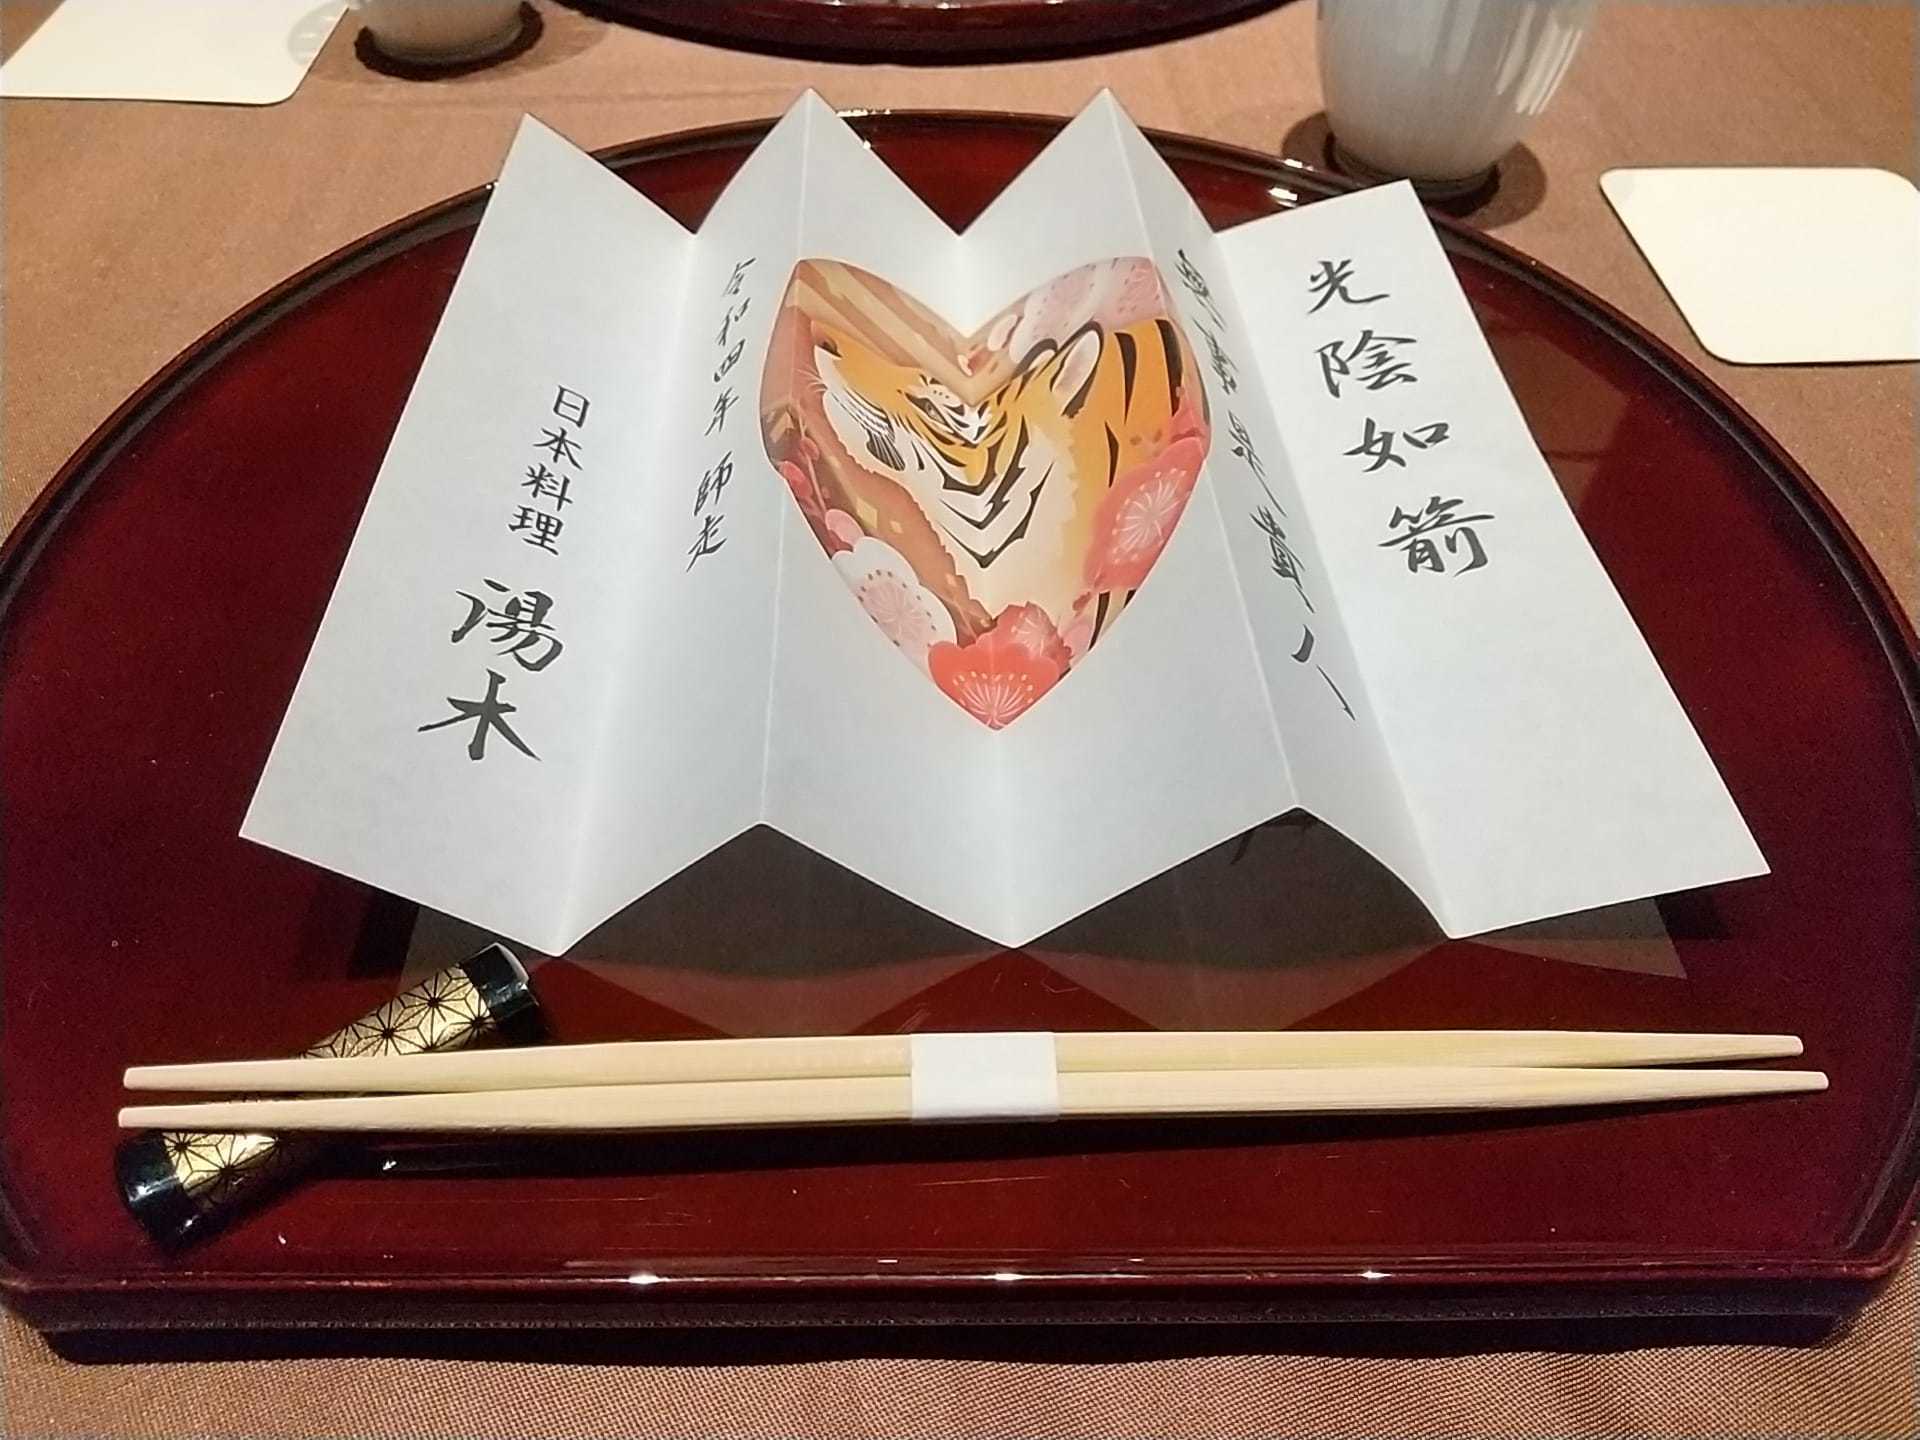 光陰如箭
令和四年 師走
日本料理 湯木